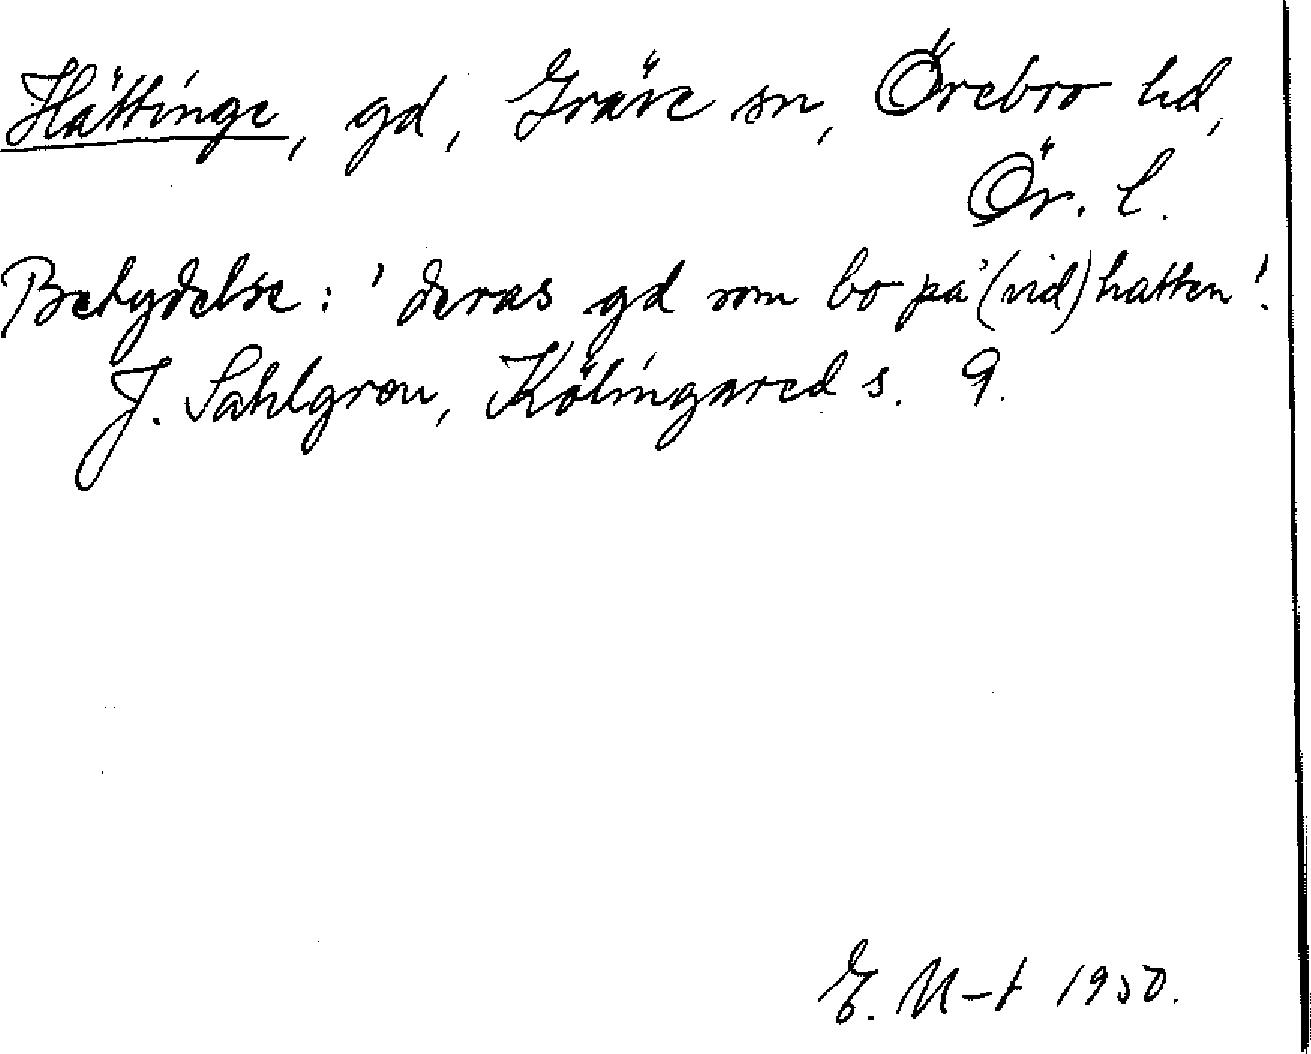 Hättinge, gd, Gräve sn, Örebro hd,
Ör. l.
Betydelse: 'deras gd som bo på (vid) hatten'.
J. Sahlgren, Kölingared s. 9.
E. M-t 1950.